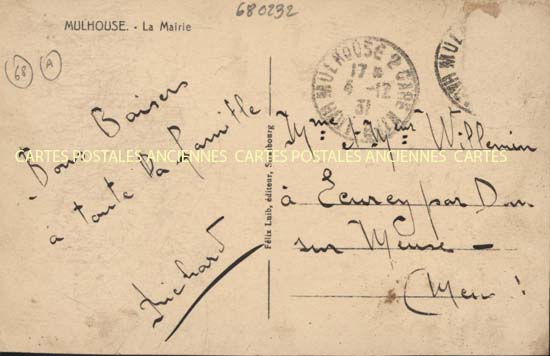 680232
MULHOUSE. - La Mairie
68
A
MULHOUSE 2 GARE
17
-12
31
Bons Baisers
à toute la famille
Richard
Félix Luib, éditeur, Strasbourg
CARTES POSTALES ANCIENNES CARTES POSTALES ANCIENNES CARTES POSTALES ANCIENNES
Mme et Meur Willemin
à Ecurey par Dun
sur Meuse -